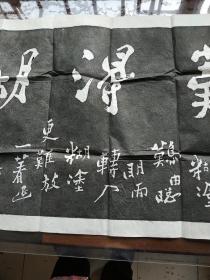 難得糊
糊塗
難由聰
明而
轉入
糊塗
更難放
一著退